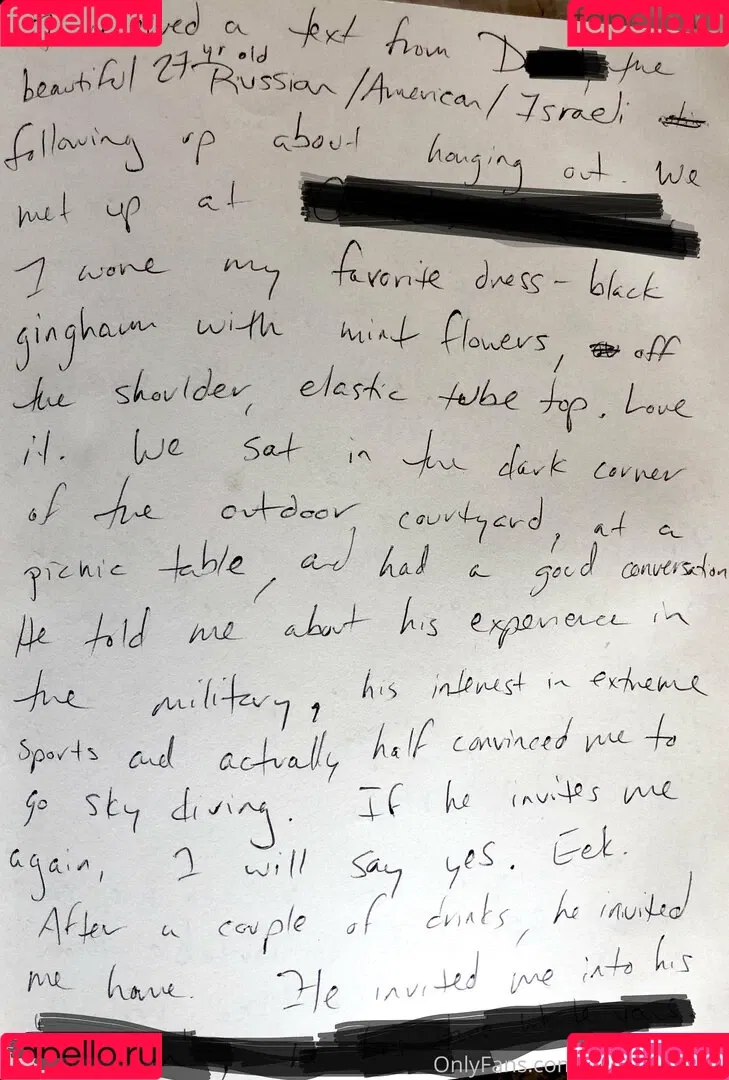 fapello.ru fapello.ru
a text from D the
beautiful 27 yr old Russian/American/Israeli
following up about hanging out. We
met up at
I wore my favorite dress – black
gingham with mint flowers, off
the shoulder, elastic tube top. Love
it. We sat in the dark corner
of the outdoor courtyard, at a
picnic table, and had a good conversation
He told me about his experience in
the military, his interest in extreme
sports and actually half convinced me to
go sky diving. If he invites me
again, I will say yes. Eek.
After a couple of drinks, he invited
me home. He invited me into his
OnlyFans.com
fapello.ru fapello.ru